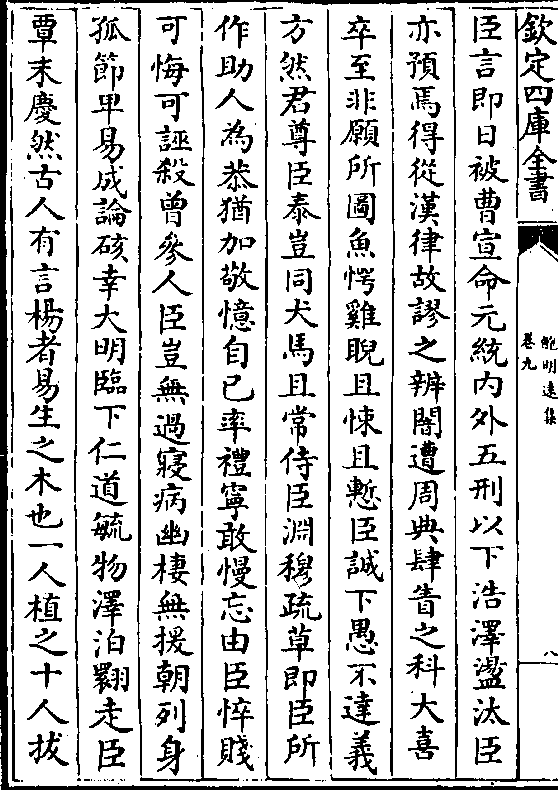 欽定四庫全書
鮑明遠集
卷九
八
臣言即日被曹宣命元統內外五刑以下浩澤盪汰臣
亦預焉得從漢律故謬之辨闇遭周典肆眚之科大喜
卒至非願所圖魚愕雞睨且悚且慙臣誠下愚不達義
方然君尊臣泰豈同犬馬且常侍臣淵穆疏草即臣所
作助人為恭猶加敬憶自已率禮寧敢慢忘由臣悴賤
可悔可誣殺曾參人臣豈無過寢病幽棲無援朝列身
孤節卑易成論硋幸大明臨下仁道毓物澤洎翾走臣
覃末慶然古人有言楊者易生之木也一人植之十人拔